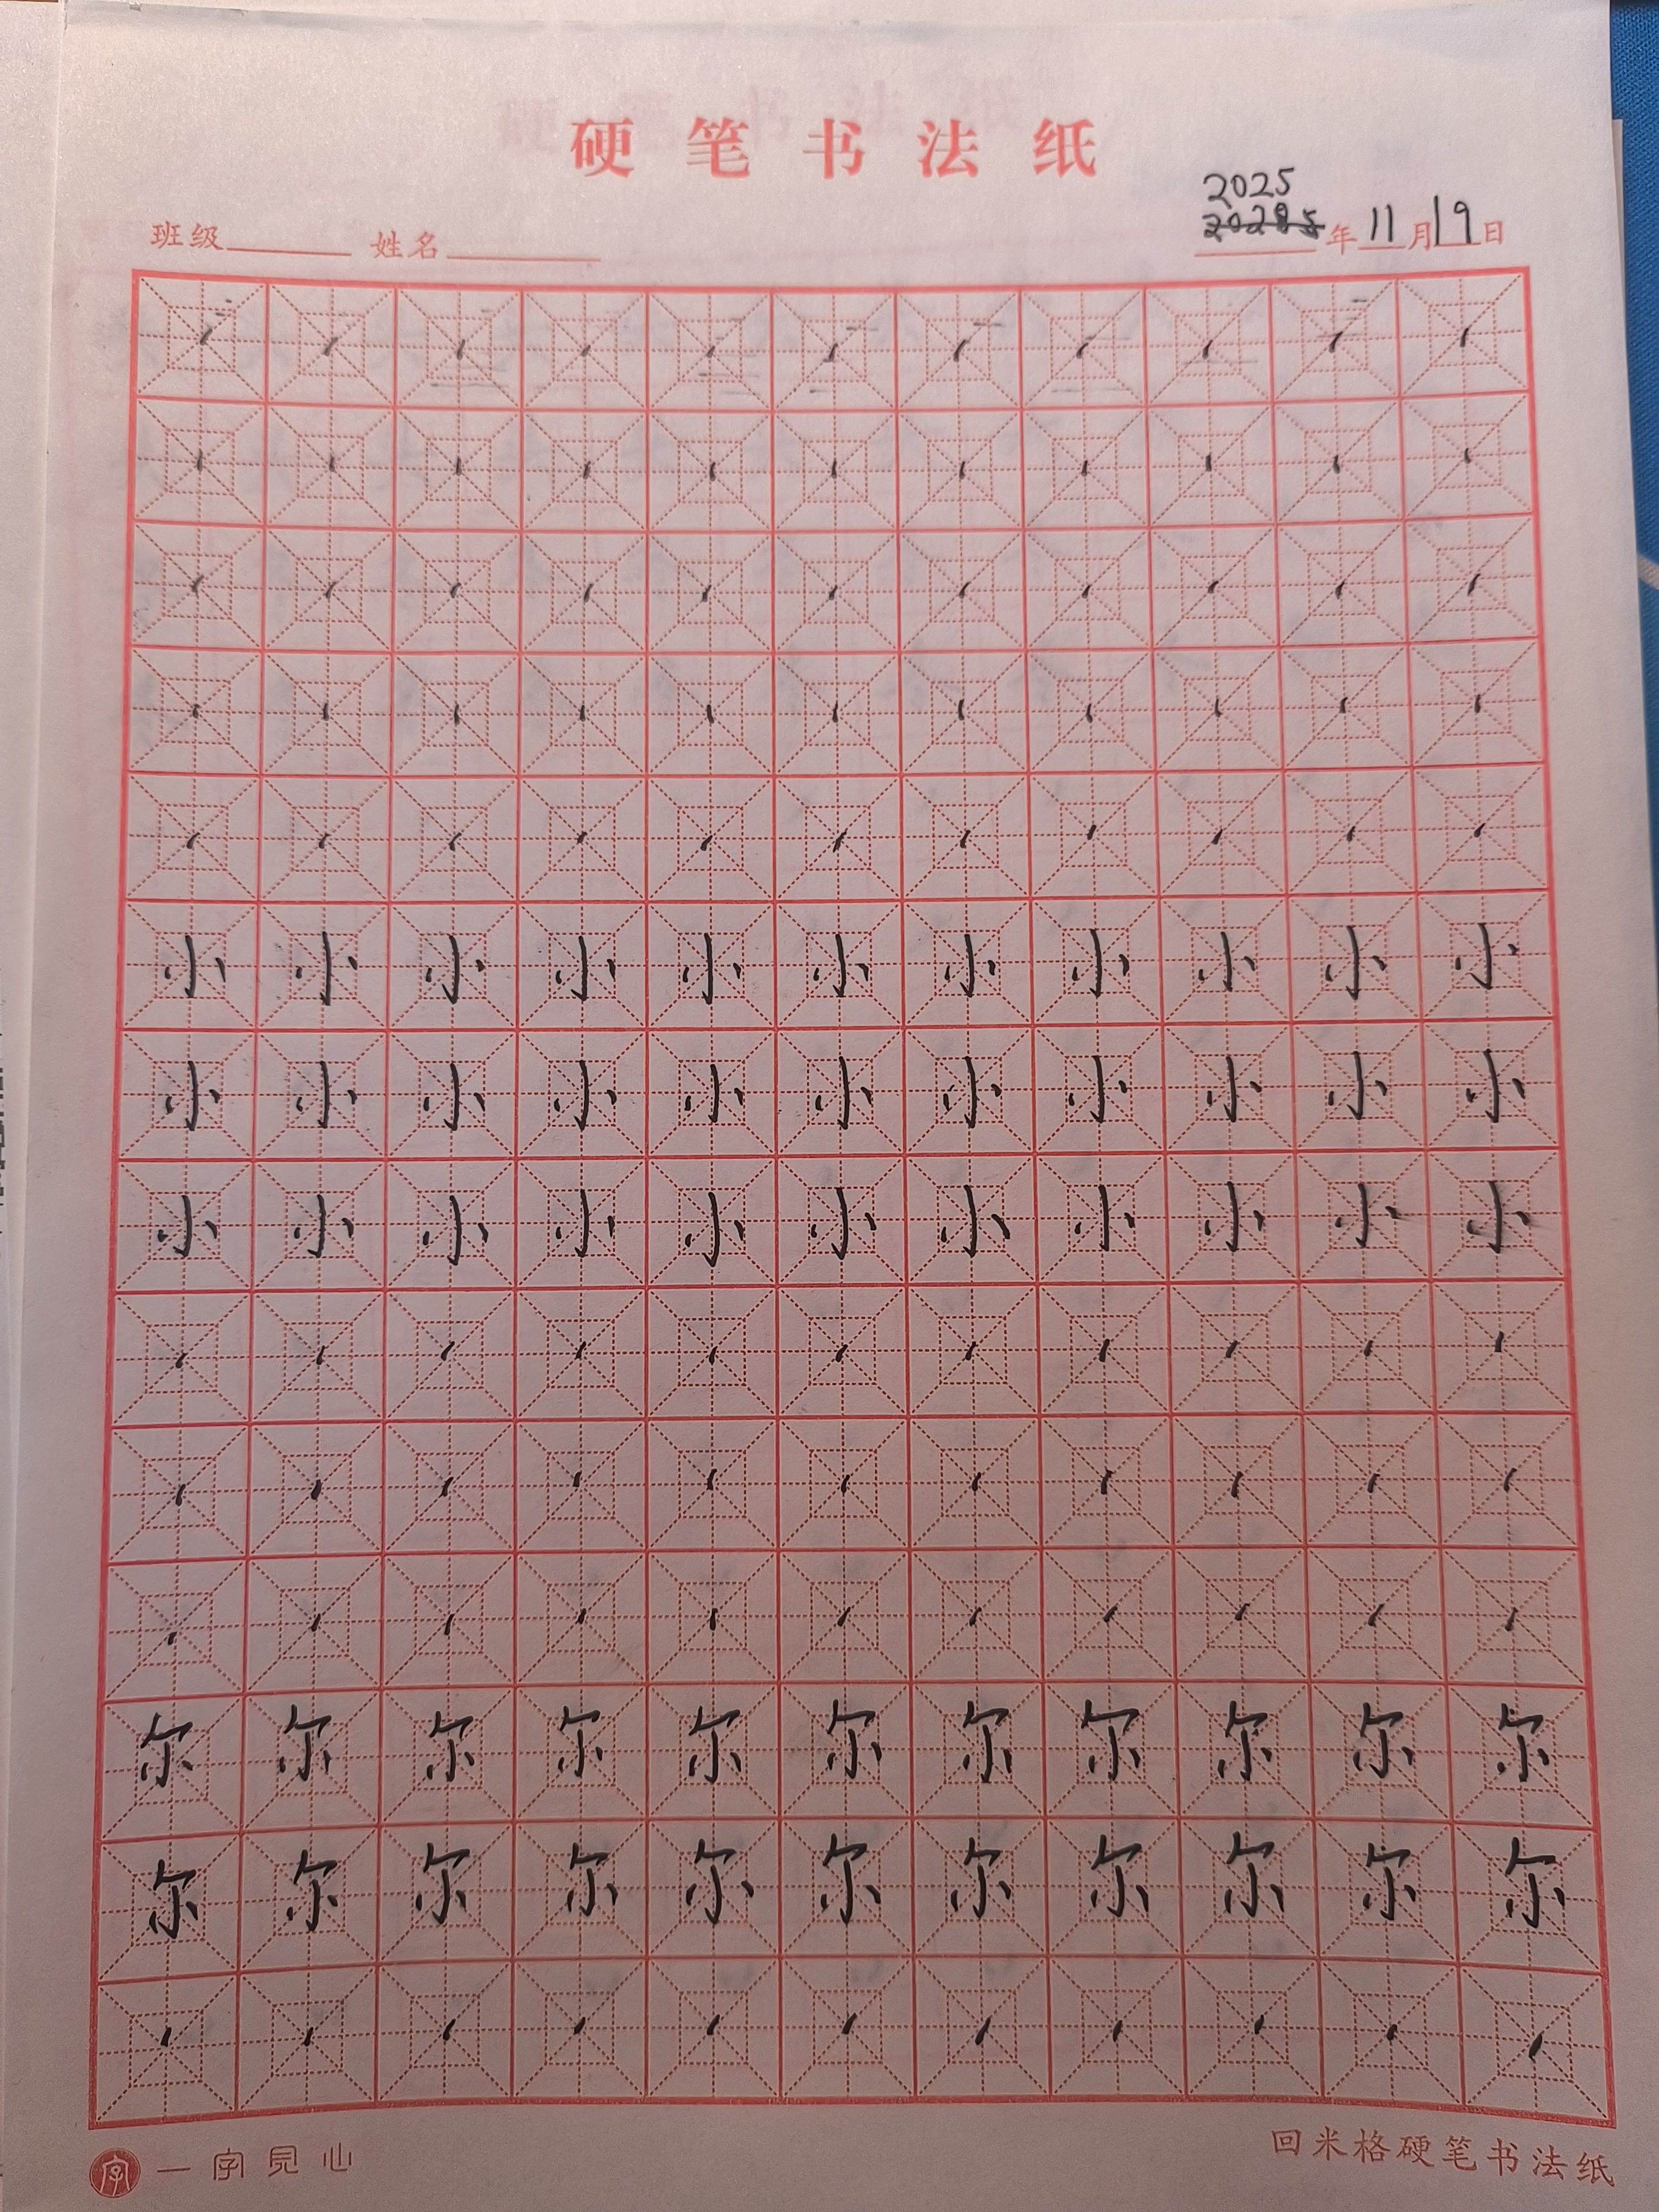 硬笔书法纸
2025
班级 姓名 20285年11月19日
小小小小小小小小小小小
小小小小小小小小小小小
小小小小小小小小小小小
尔尔尔尔尔尔尔尔尔尔尔
尔尔尔尔尔尔尔尔尔尔尔
字 一字見心 回米格硬笔书法纸